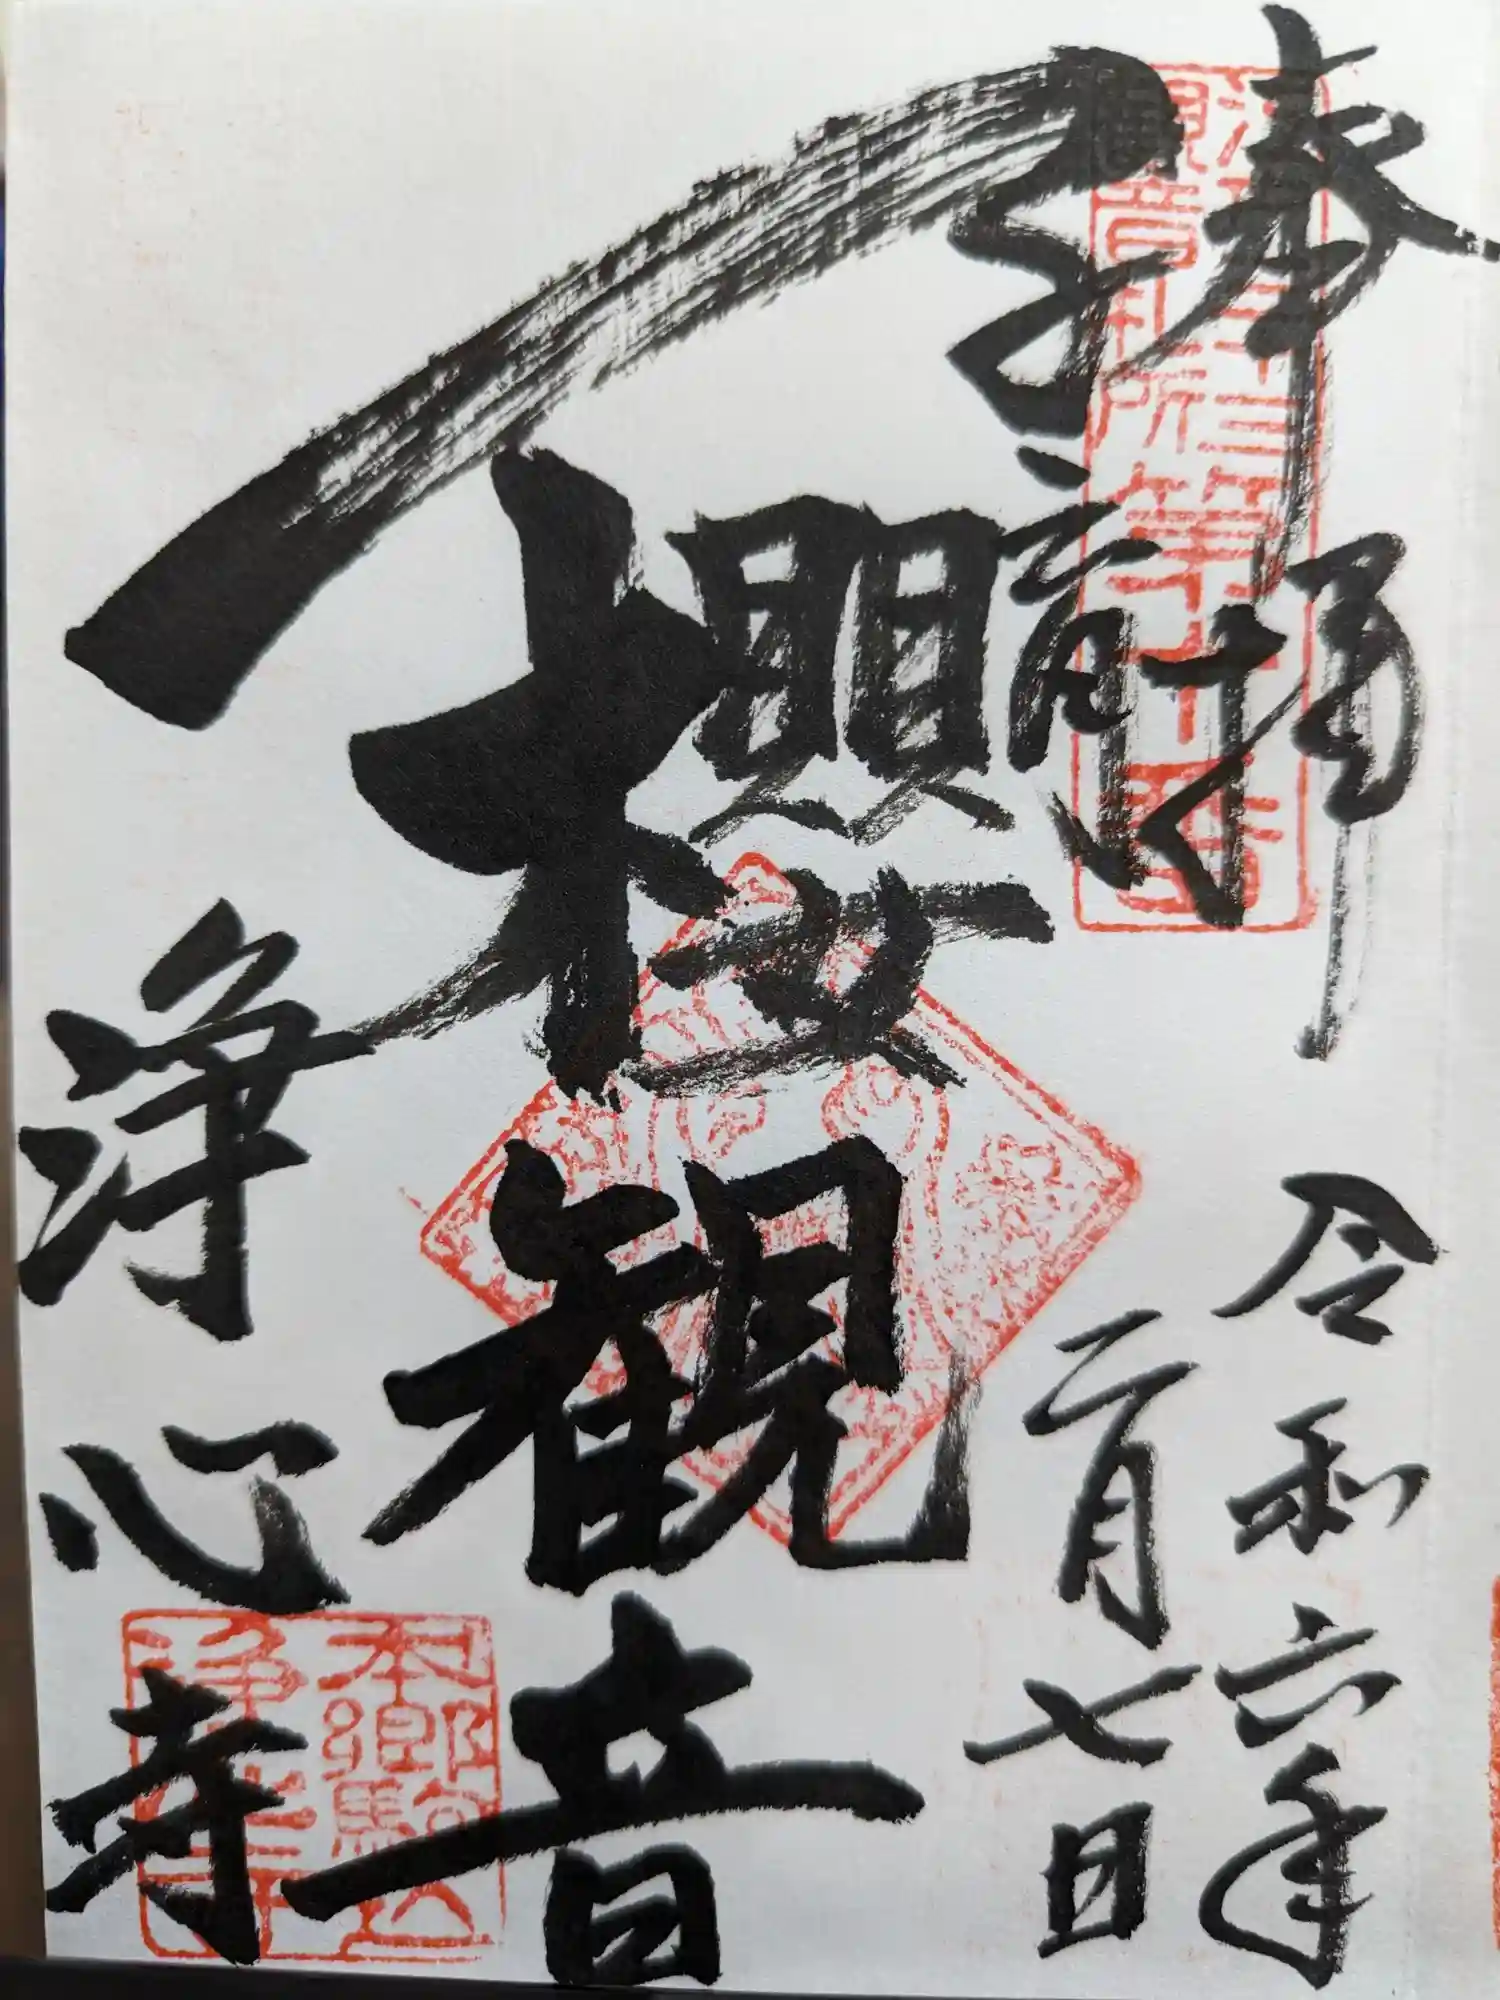 奉拝
令和六年
二月七日
子育
櫻観音
浄心寺
江戸三十三
観音札所
第十番
本郷駒込
浄心寺